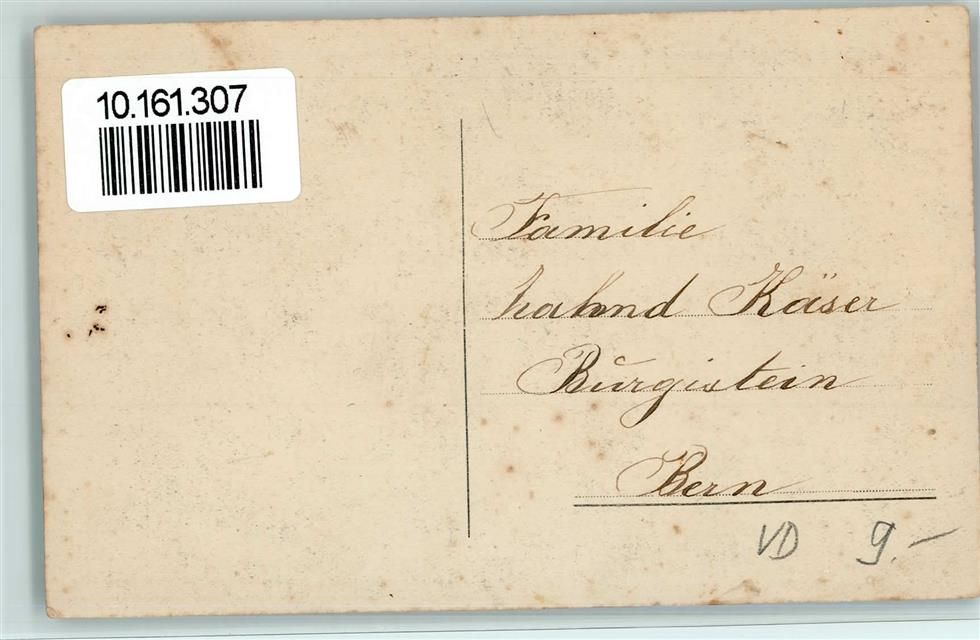 10.161.307
Familie
Käser
Burgistein
Bern
VD 9.-